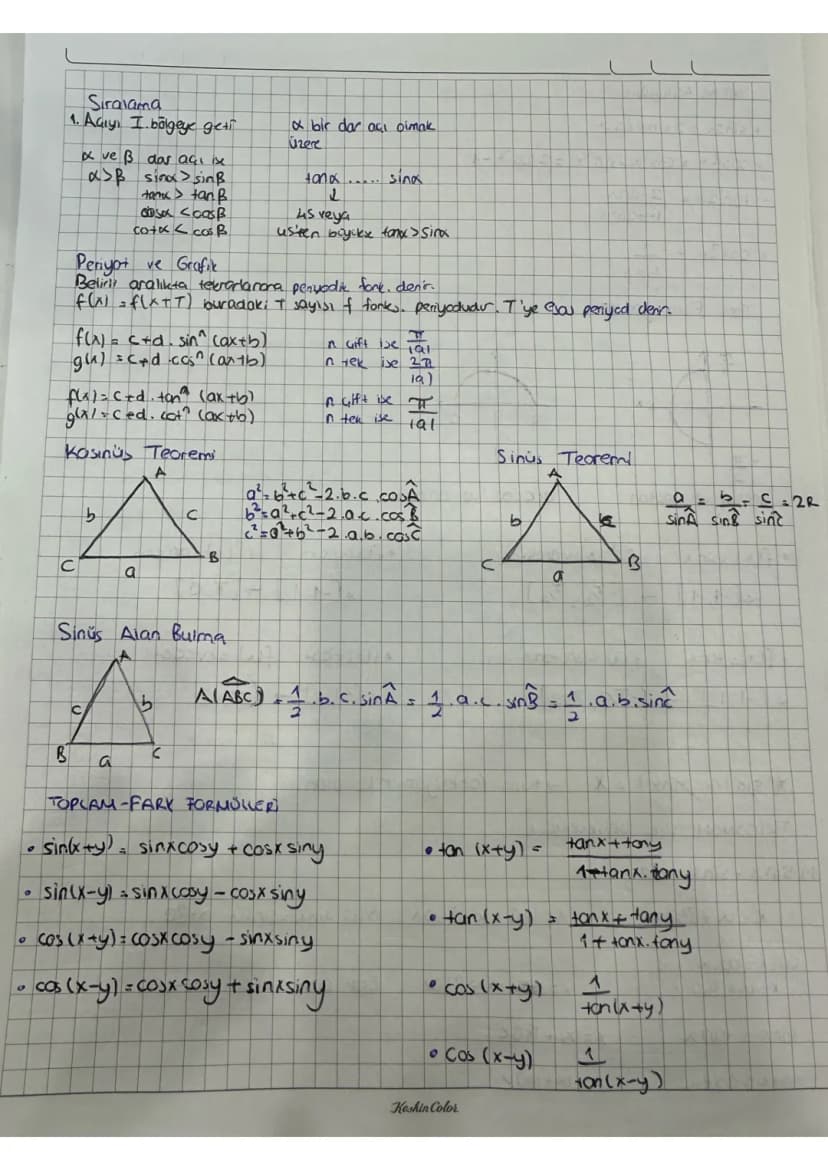 Sıralama
1. Açıyı I. bölgeye getir
α ve β dar açı ise
α>β sinα>sinβ
tanα > tanβ
cosα < cosβ
cotα < cosβ
α bir dar açı olmak
üzere
tanα ..... sinα
↓
45 veya
45'ten büyükse tanα > sinα
Periyot ve Grafik
Belirli aralıkta tekrarlanana periyodik fonk. denir.
f(x) = f(x+T) buradaki T sayısı f fonks. periyodudur. T'ye esas periyod denir.
f(x) = c+d. sinⁿ (ax+b) n çift ise π/|a|
g(x) = c+d .cosⁿ (ax+b) n tek ise 2π/|a|
f(x) = c+d. tanⁿ (ax+b) n çift ise π/|a|
g(x) = c+d. cotⁿ (ax+b) n tek ise
Kosinüs Teoremi
A
b c
C a B
a²=b²+c²-2.b.c.cosÂ
b²=a²+c²-2.a.c.cosB̂
c²=a²+b²-2.a.b.cosĈ
Sinüs Teoremi
A
b c
C a B
a/sinÂ = b/sinB̂ = c/sinĈ = 2R
Sinüs Alan Bulma
A
c b
B a C
A(ABC) = 1/2 .b.c.sinÂ = 1/2 .a.c.sinB̂ = 1/2 .a.b.sinĈ
TOPLAM-FARK FORMÜLLERİ
• sin(x+y) = sinxcosy + cosxsiny
• sin(x-y) = sinxcosy - cosxsiny
• cos(x+y) = cosxcosy - sinxsiny
• cos(x-y) = cosxcosy + sinxsiny
• tan (x+y) = tanx+tany / 1-tanx.tany
• tan(x-y) = tanx+tany / 1+tanx.tany
• cos(x+y) 1/tan(x+y)
• cos(x-y) 1/tan(x-y)
KeskinColor